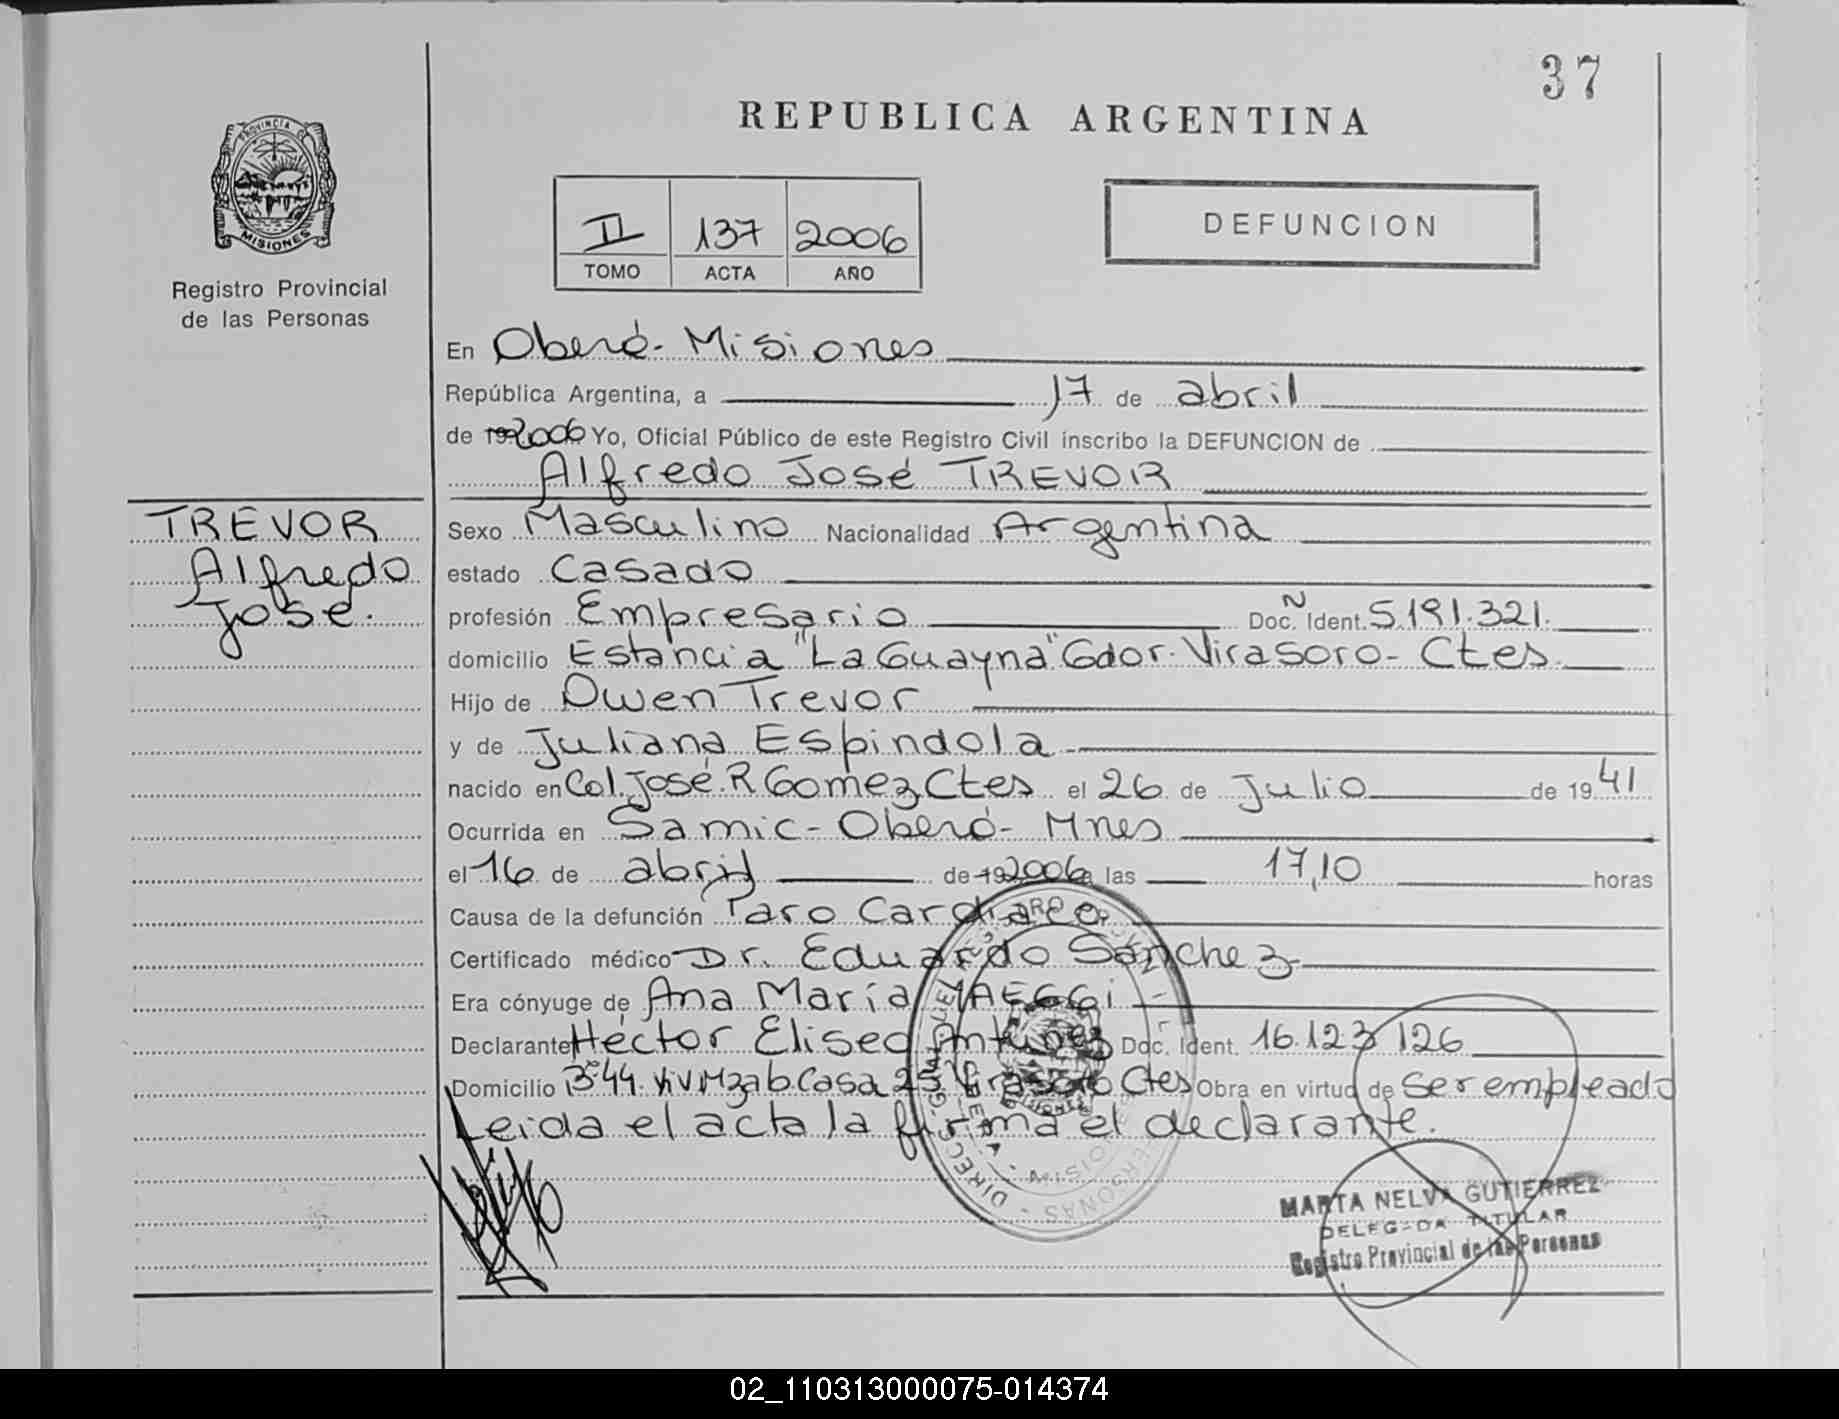 37
REPUBLICA ARGENTINA
PROVINCIA DE
MISIONES
Registro Provincial
de las Personas
II 137 2006
TOMO ACTA AÑO
DEFUNCION
En Oberá- Misiones
República Argentina, a 17 de abril
de 19 2006 Yo, Oficial Público de este Registro Civil inscribo la DEFUNCION de
Alfredo José TREVOR
TREVOR
Alfredo
José.
Sexo Masculino Nacionalidad Argentina
estado Casado
profesión Empresario Doc. Ident. Nº 5.191.321.
domicilio Estancia "La Guayna" Gdor. Virasoro- Ctes.
Hijo de Owen Trevor
y de Juliana Espindola
nacido en Col. José. R Gomez Ctes el 26 de Julio de 1941
Ocurrida en Samic- Oberá- Mnes
el 16 de abril de 19 2006 a las 17,10 horas
Causa de la defunción Paro Cardiaco.
Certificado médico Dr. Eduardo Sánchez
Era cónyuge de Ana María MAEGGi
Declarante Héctor Eliseo Antunez Doc. Ident. 16.123 126
Domicilio Bº 44. Viv Mza b. Casa 25 Virasoro Ctes Obra en virtud de Ser empleado
Leida el acta la firma el declarante.
MARTA NELVA GUTIERREZ
DELEGADA TITULAR
Registro Provincial de las Personas
02_110313000075-014374